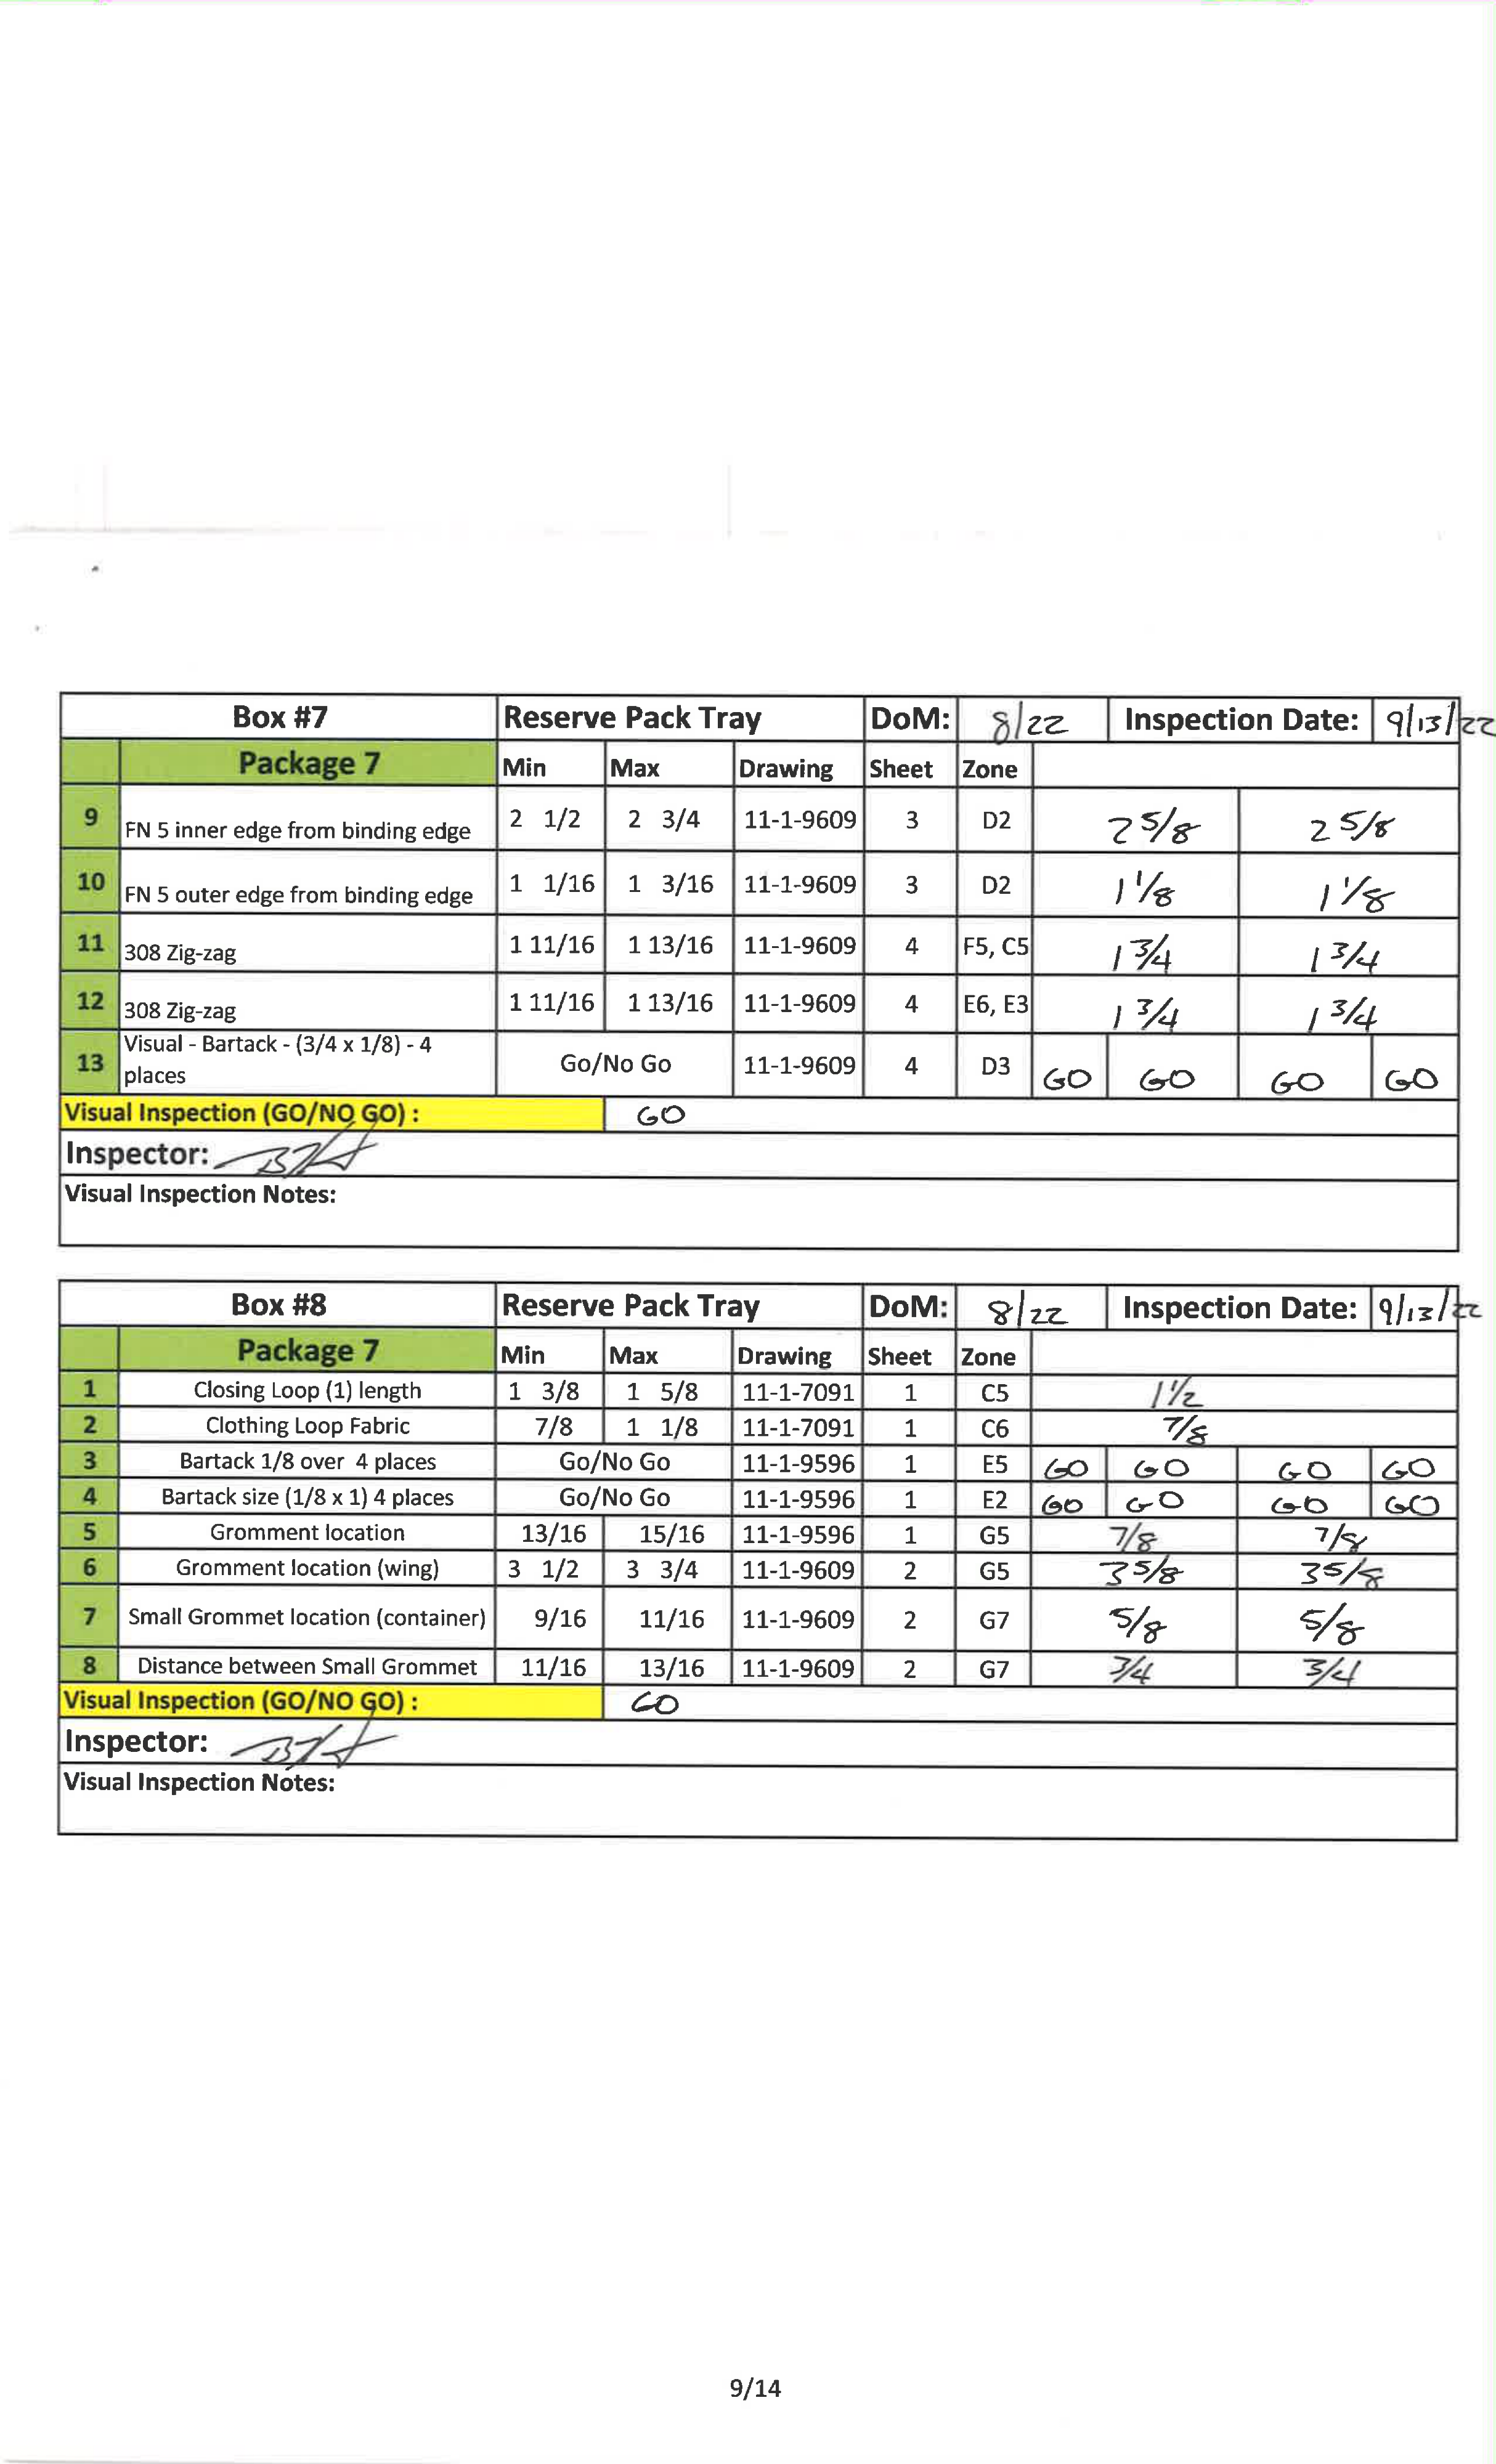 Box #7 Reserve Pack Tray DoM: 8/22 Inspection Date: 9/13/22
Package 7 Min Max Drawing Sheet Zone
9 FN 5 inner edge from binding edge 2 1/2 2 3/4 11-1-9609 3 D2 2 5/8 2 5/8
10 FN 5 outer edge from binding edge 1 1/16 1 3/16 11-1-9609 3 D2 1 1/8 1 1/8
11 308 Zig-zag 1 11/16 1 13/16 11-1-9609 4 F5, C5 1 3/4 1 3/4
12 308 Zig-zag 1 11/16 1 13/16 11-1-9609 4 E6, E3 1 3/4 1 3/4
Visual - Bartack - (3/4 x 1/8) - 4
13 places Go/No Go 11-1-9609 4 D3 GO GO GO GO
Visual Inspection (GO/NO GO) : GO
Inspector:
Visual Inspection Notes:
Box #8 Reserve Pack Tray DoM: 8/22 Inspection Date: 9/13/22
Package 7 Min Max Drawing Sheet Zone
1 Closing Loop (1) length 1 3/8 1 5/8 11-1-7091 1 C5 1 1/2
2 Clothing Loop Fabric 7/8 1 1/8 11-1-7091 1 C6 7/8
3 Bartack 1/8 over 4 places Go/No Go 11-1-9596 1 E5 GO GO GO GO
4 Bartack size (1/8 x 1) 4 places Go/No Go 11-1-9596 1 E2 GO GO GO GO
5 Gromment location 13/16 15/16 11-1-9596 1 G5 7/8 7/8
6 Gromment location (wing) 3 1/2 3 3/4 11-1-9609 2 G5 3 5/8 3 5/8
7 Small Grommet location (container) 9/16 11/16 11-1-9609 2 G7 5/8 5/8
8 Distance between Small Grommet 11/16 13/16 11-1-9609 2 G7 3/4 3/4
Visual Inspection (GO/NO GO) : GO
Inspector:
Visual Inspection Notes:
9/14